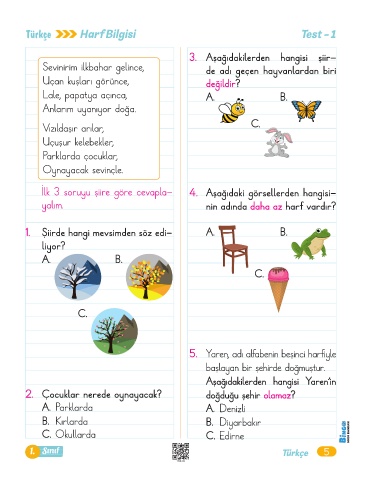 Türkçe >>> Harf Bilgisi
Test - 1
Sevinirim ilkbahar gelince,
Uçan kuşları görünce,
Lale, papatya açınca,
Anlarım uyanıyor doğa.
Vızıldaşır arılar,
Uçuşur kelebekler,
Parklarda çocuklar,
Oynayacak sevinçle.
İlk 3 soruyu şiire göre cevapla-
yalım.
1. Şiirde hangi mevsimden söz edi-
liyor?
A. B.
C.
2. Çocuklar nerede oynayacak?
A. Parklarda
B. Kırlarda
C. Okullarda
3. Aşağıdakilerden hangisi şiir-
de adı geçen hayvanlardan biri
değildir?
A. B.
C.
4. Aşağıdaki görsellerden hangisi-
nin adında daha az harf vardır?
A. B.
C.
5. Yaren, adı alfabenin beşinci harfiyle
başlayan bir şehirde doğmuştur.
Aşağıdakilerden hangisi Yaren'in
doğduğu şehir olamaz?
A. Denizli
B. Diyarbakır
C. Edirne
1. Sınıf
Türkçe 5